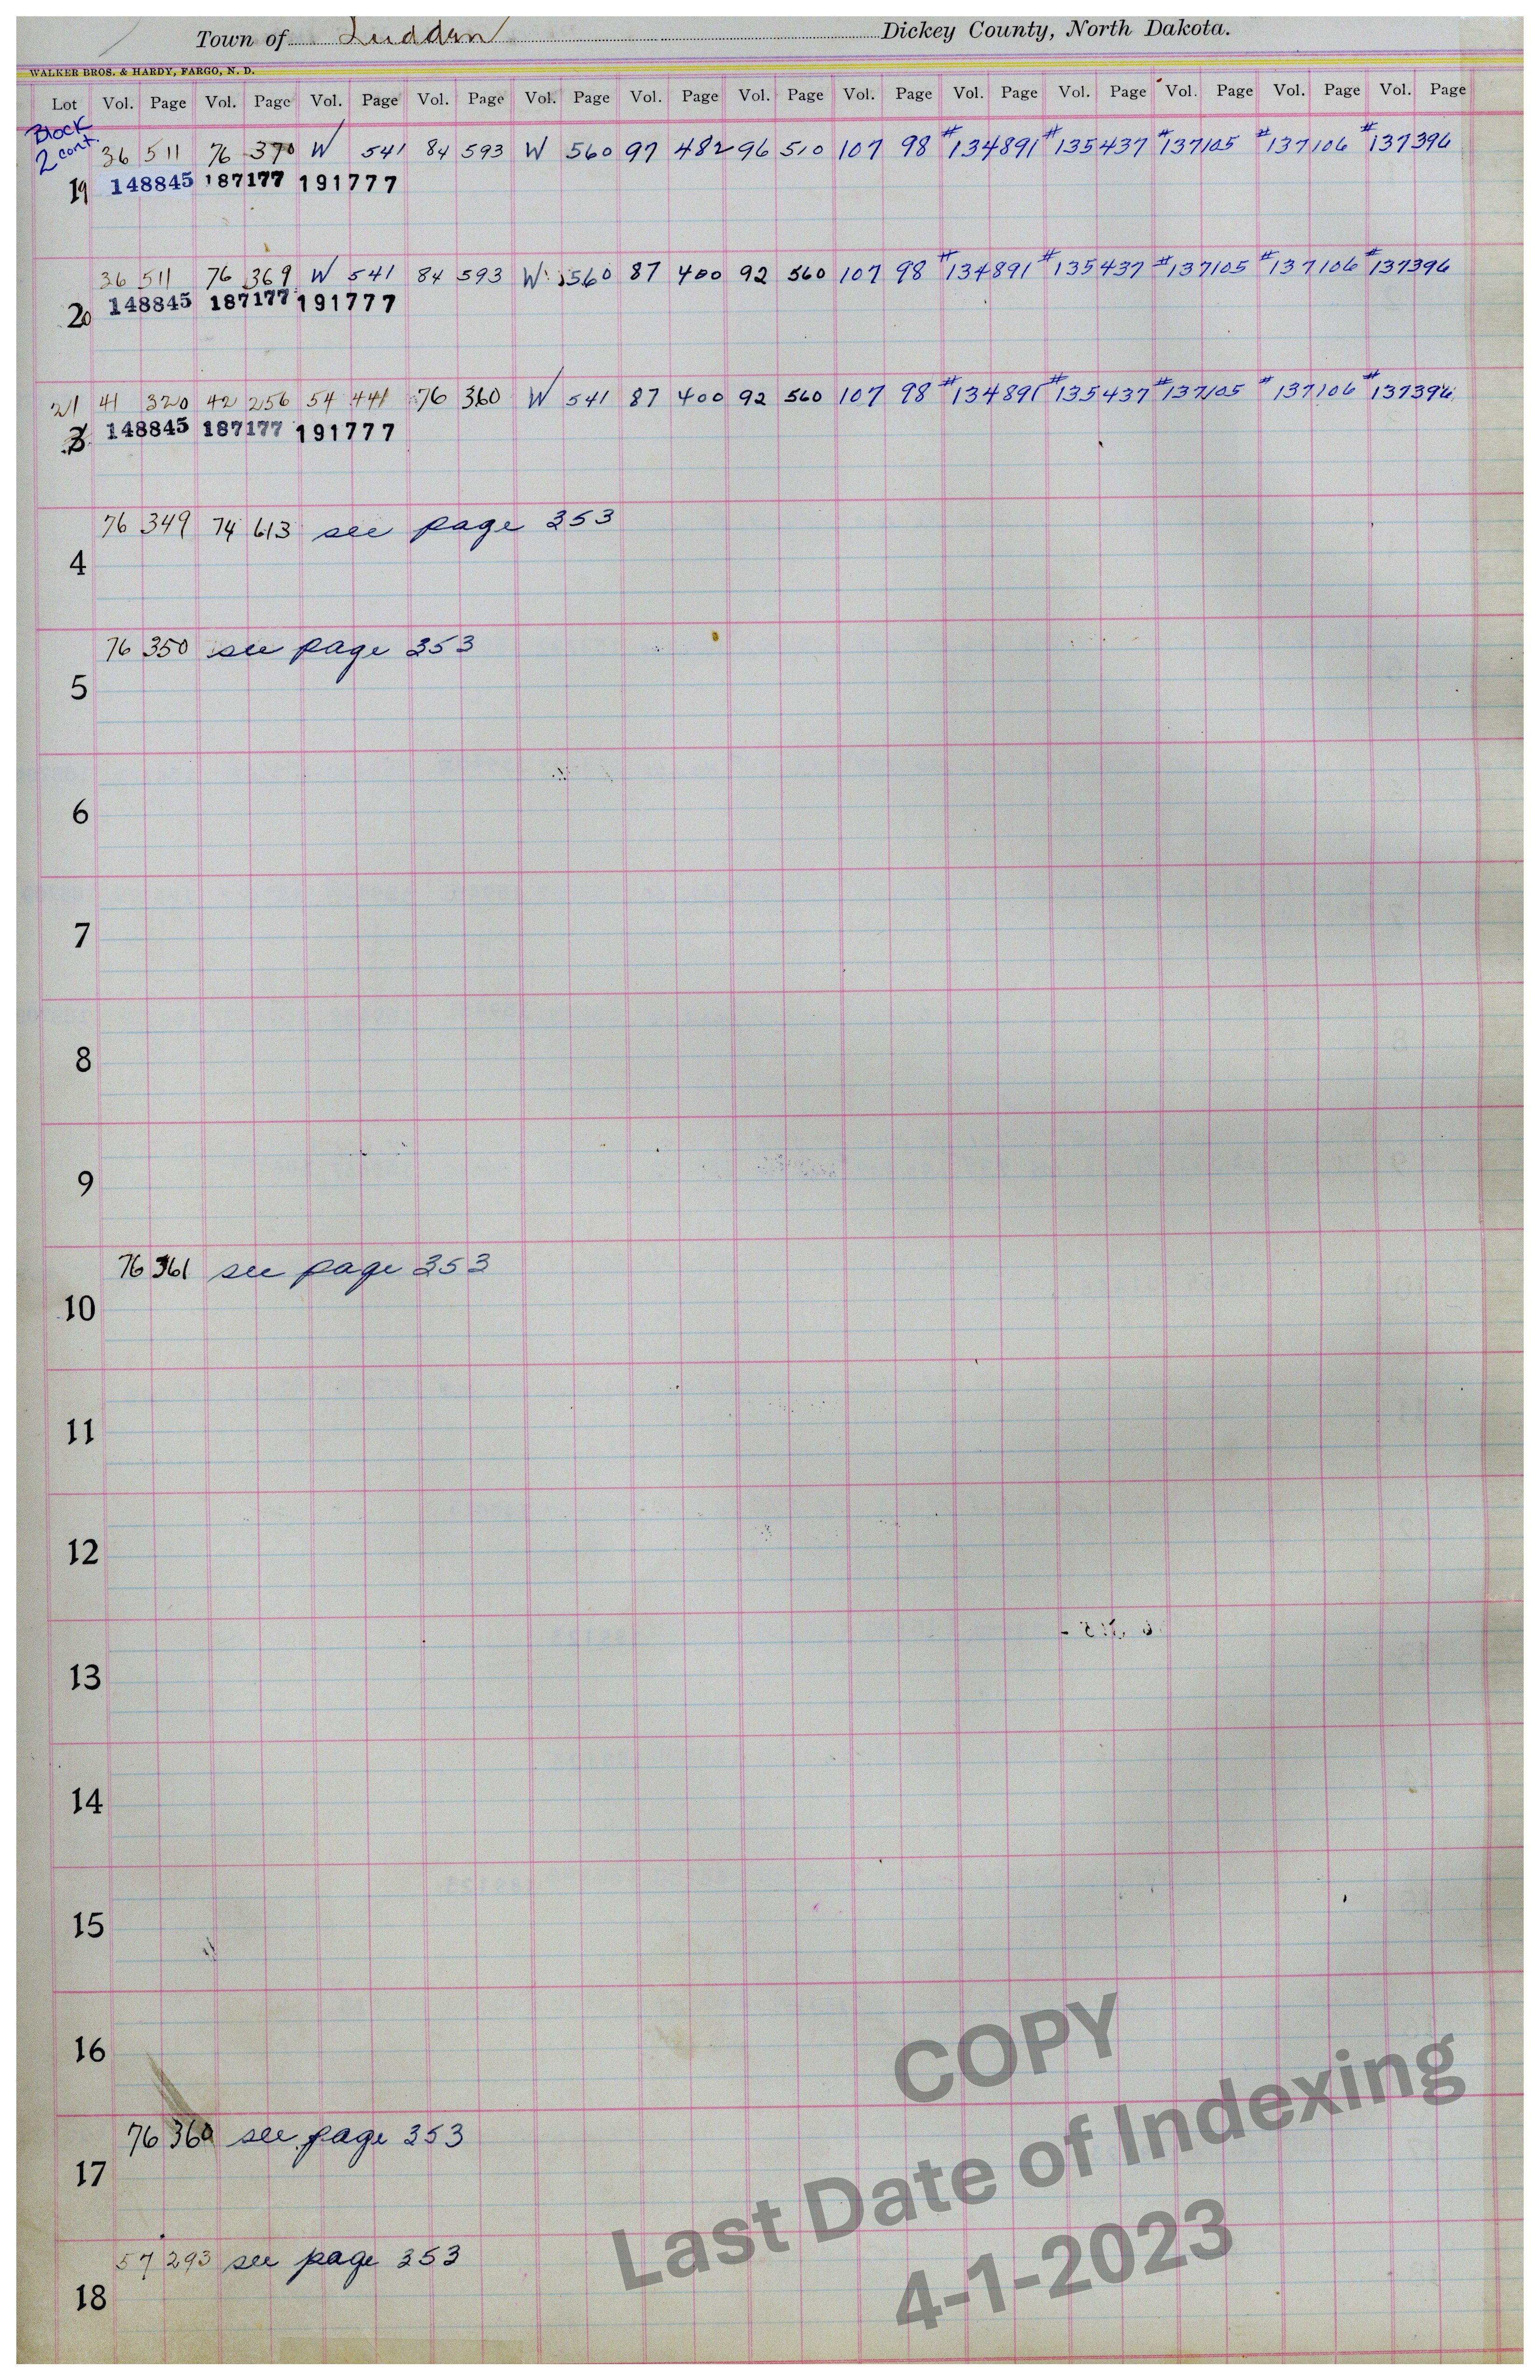 Town of Ludden Dickey County, North Dakota.
WALKER BROS. & HARDY, FARGO, N. D.
Lot Vol. Page Vol. Page Vol. Page Vol. Page Vol. Page Vol. Page Vol. Page Vol. Page Vol. Page Vol. Page Vol. Page Vol. Page Vol. Page
Block
2 cont.
36 511 76 370 W 541 84 593 W 560 97 482 96 510 107 98 #134891 #135437 #137105 #137106 #137396
19 148845 187177 191777
36 511 76 369 W 541 84 593 W 560 87 400 92 560 107 98 #134891 #135437 #137105 #137106 #137396
20 148845 187177 191777
21 41 320 42 256 54 441 76 360 W 541 87 400 92 560 107 98 #134891 #135437 #137105 #137106 #137396
3 148845 187177 191777
76 349 74 613 see page 353
4
76 350 see page 353
5
6
7
8
9
76 361 see page 353
10
11
12
13
14
15
16
76 360 see page 353
17
57 293 see page 353
18
COPY
Last Date of Indexing
4-1-2023